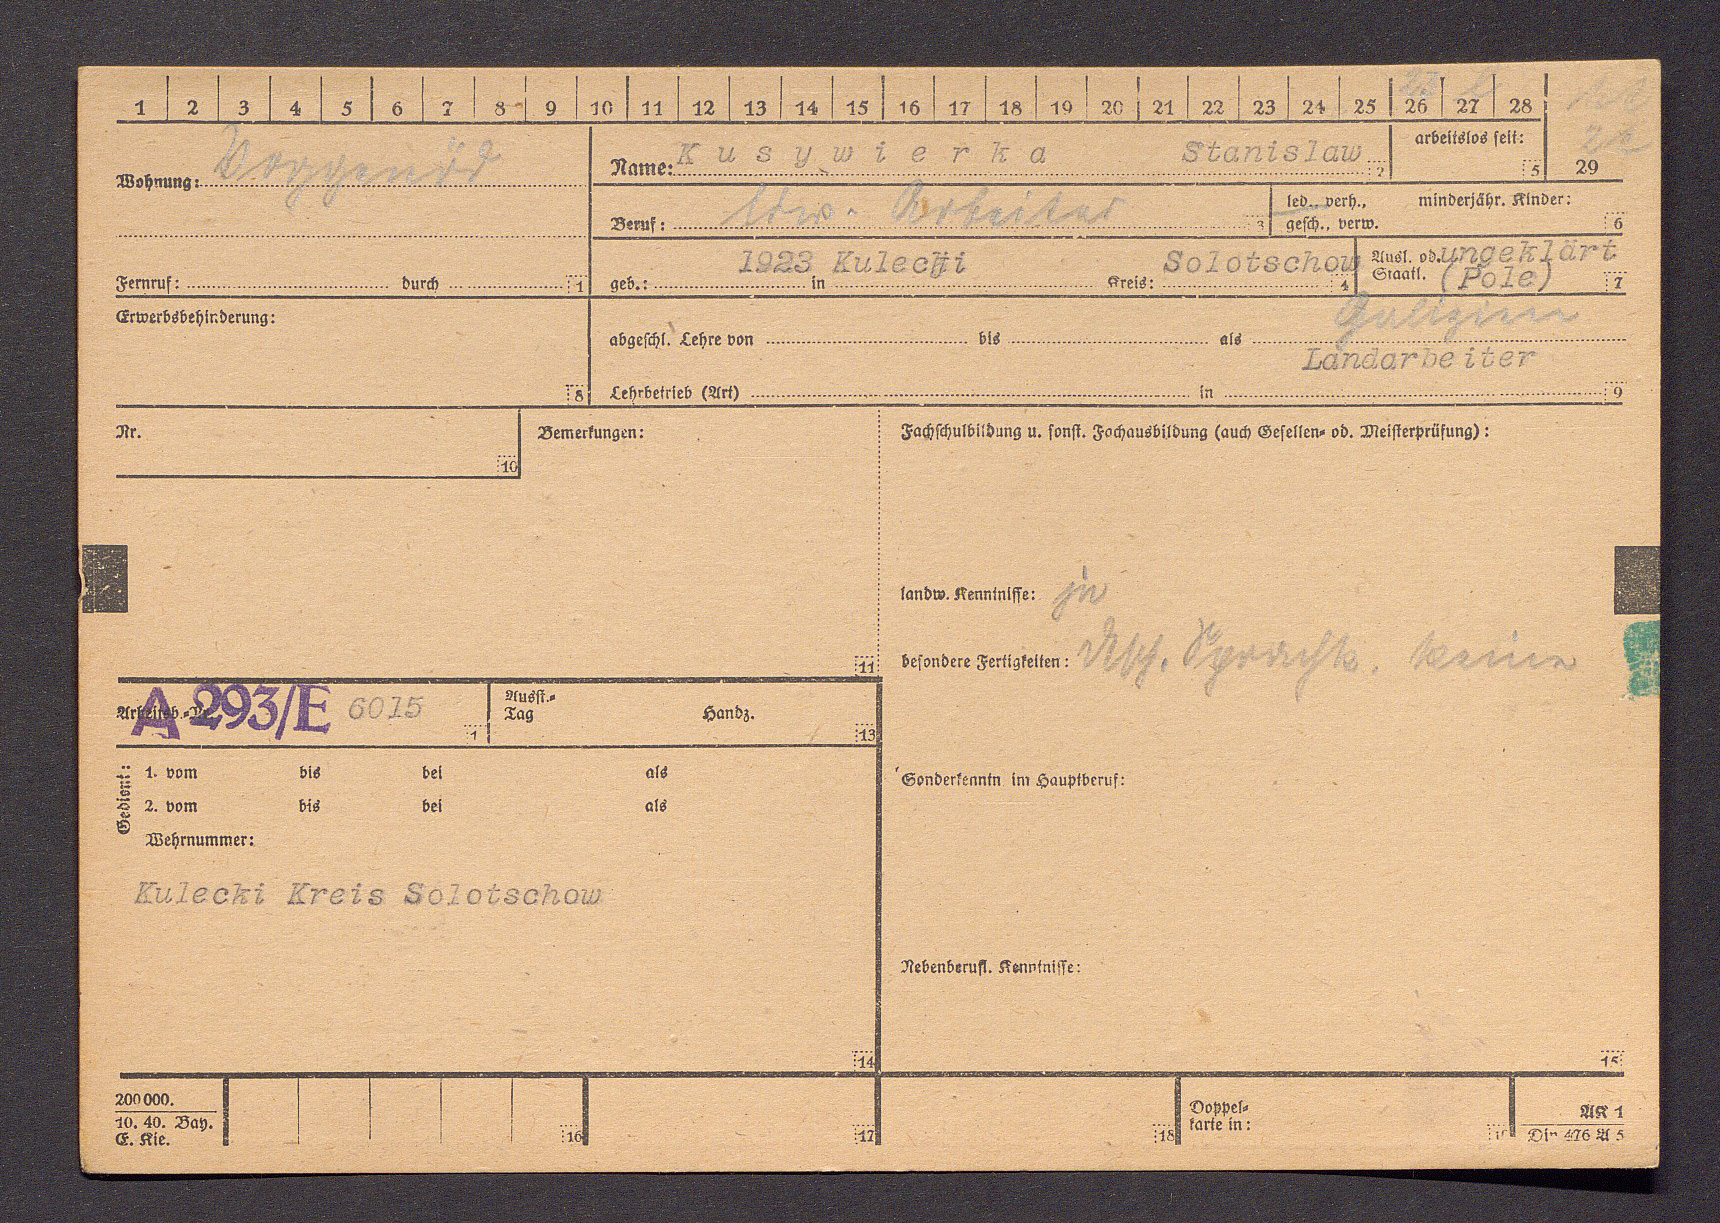 1 2 3 4 5 6 7 8 9 10 11 12 13 14 15 16 17 18 19 20 21 22 23 24 25 26 27 28
29
Wohnung: Voggenöd
Name: Kusywierka Stanislaw 2
arbeitslos seit: 5
Beruf: ldw. Arbeiter 3
led., verh.,
gesch., verw.
minderjähr. Kinder: 6
Fernruf: durch 1
geb.: 1923 in Kulecki Kreis: Solotschow 4
Ausl. od. ungeklärt
Staatl. (Pole) 7
Galizien
Erwerbsbehinderung: 8
abgeschl. Lehre von bis als
Landarbeiter
Lehrbetrieb (Art) in 9
Nr. 10
Bemerkungen: 11
Fachschulbildung u. sonst. Fachausbildung (auch Gesellen- od. Meisterprüfung):
landw. Kenntnisse: ja
besondere Fertigkeiten: dtsch. Sprachk. keine
Arbeitsb.-Nr. A 293/E 6015 1
Ausst.-
Tag Handz. 13
Gedient:
1. vom bis bei als
2. vom bis bei als
Wehrnummer:
Kulecki Kreis Solotschow
14
Sonderkenntn im Hauptberuf:
Nebenberufl. Kenntnisse:
15
200000.
10. 40. Bay.
E. Kie.
16
17
18
Doppel-
karte in:
AK 1
Din 476 A 5